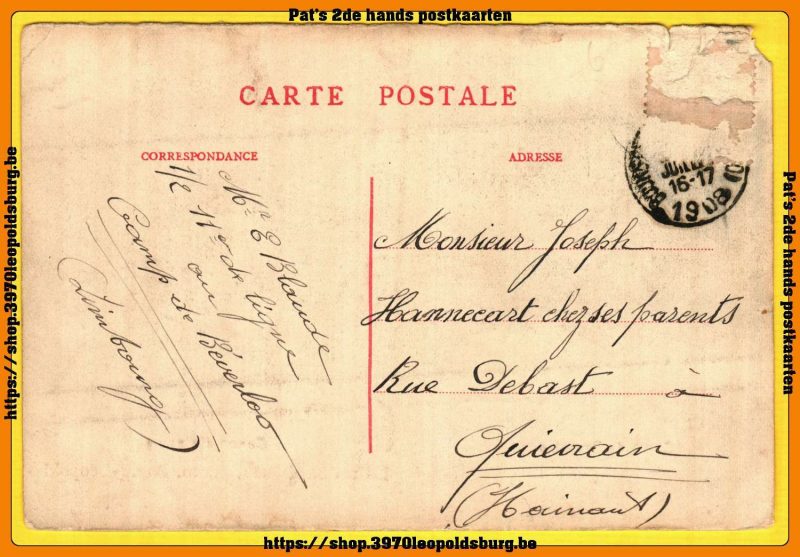 Pat's 2de hands postkaarten
CARTE POSTALE
CORRESPONDANCE
ADRESSE
Mr E Blaude
1/2 11e de ligne
au
Camp de Béverloo
(Limbourg)
JUIL
16-17
1908
Monsieur Joseph
Hannecart chez ses parents
Rue Debast à
Quievrain
(Hainaut)
https://shop.3970leopoldsburg.be
Pat's 2de hands postkaarten
https://shop.3970leopoldsburg.be